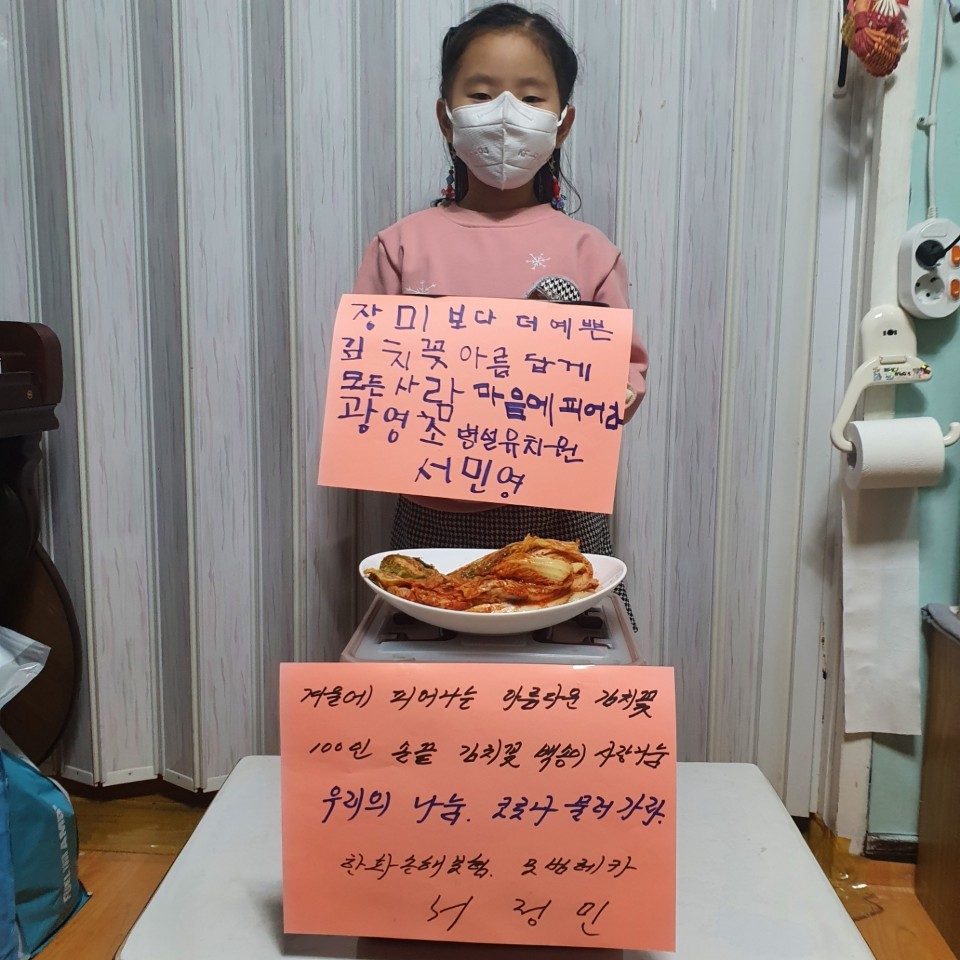 장미보다 더 예쁜
김치꽃 아름답게
모든 사람 마음에 피어남
광영초 병설유치원
서민영
겨울에 피어나는 아름다운 김치꽃
100인 손끝 김치꽃 백송이 사랑나눔
우리의 나눔. 코로나 물러가라.
한화손해보험.
서정민